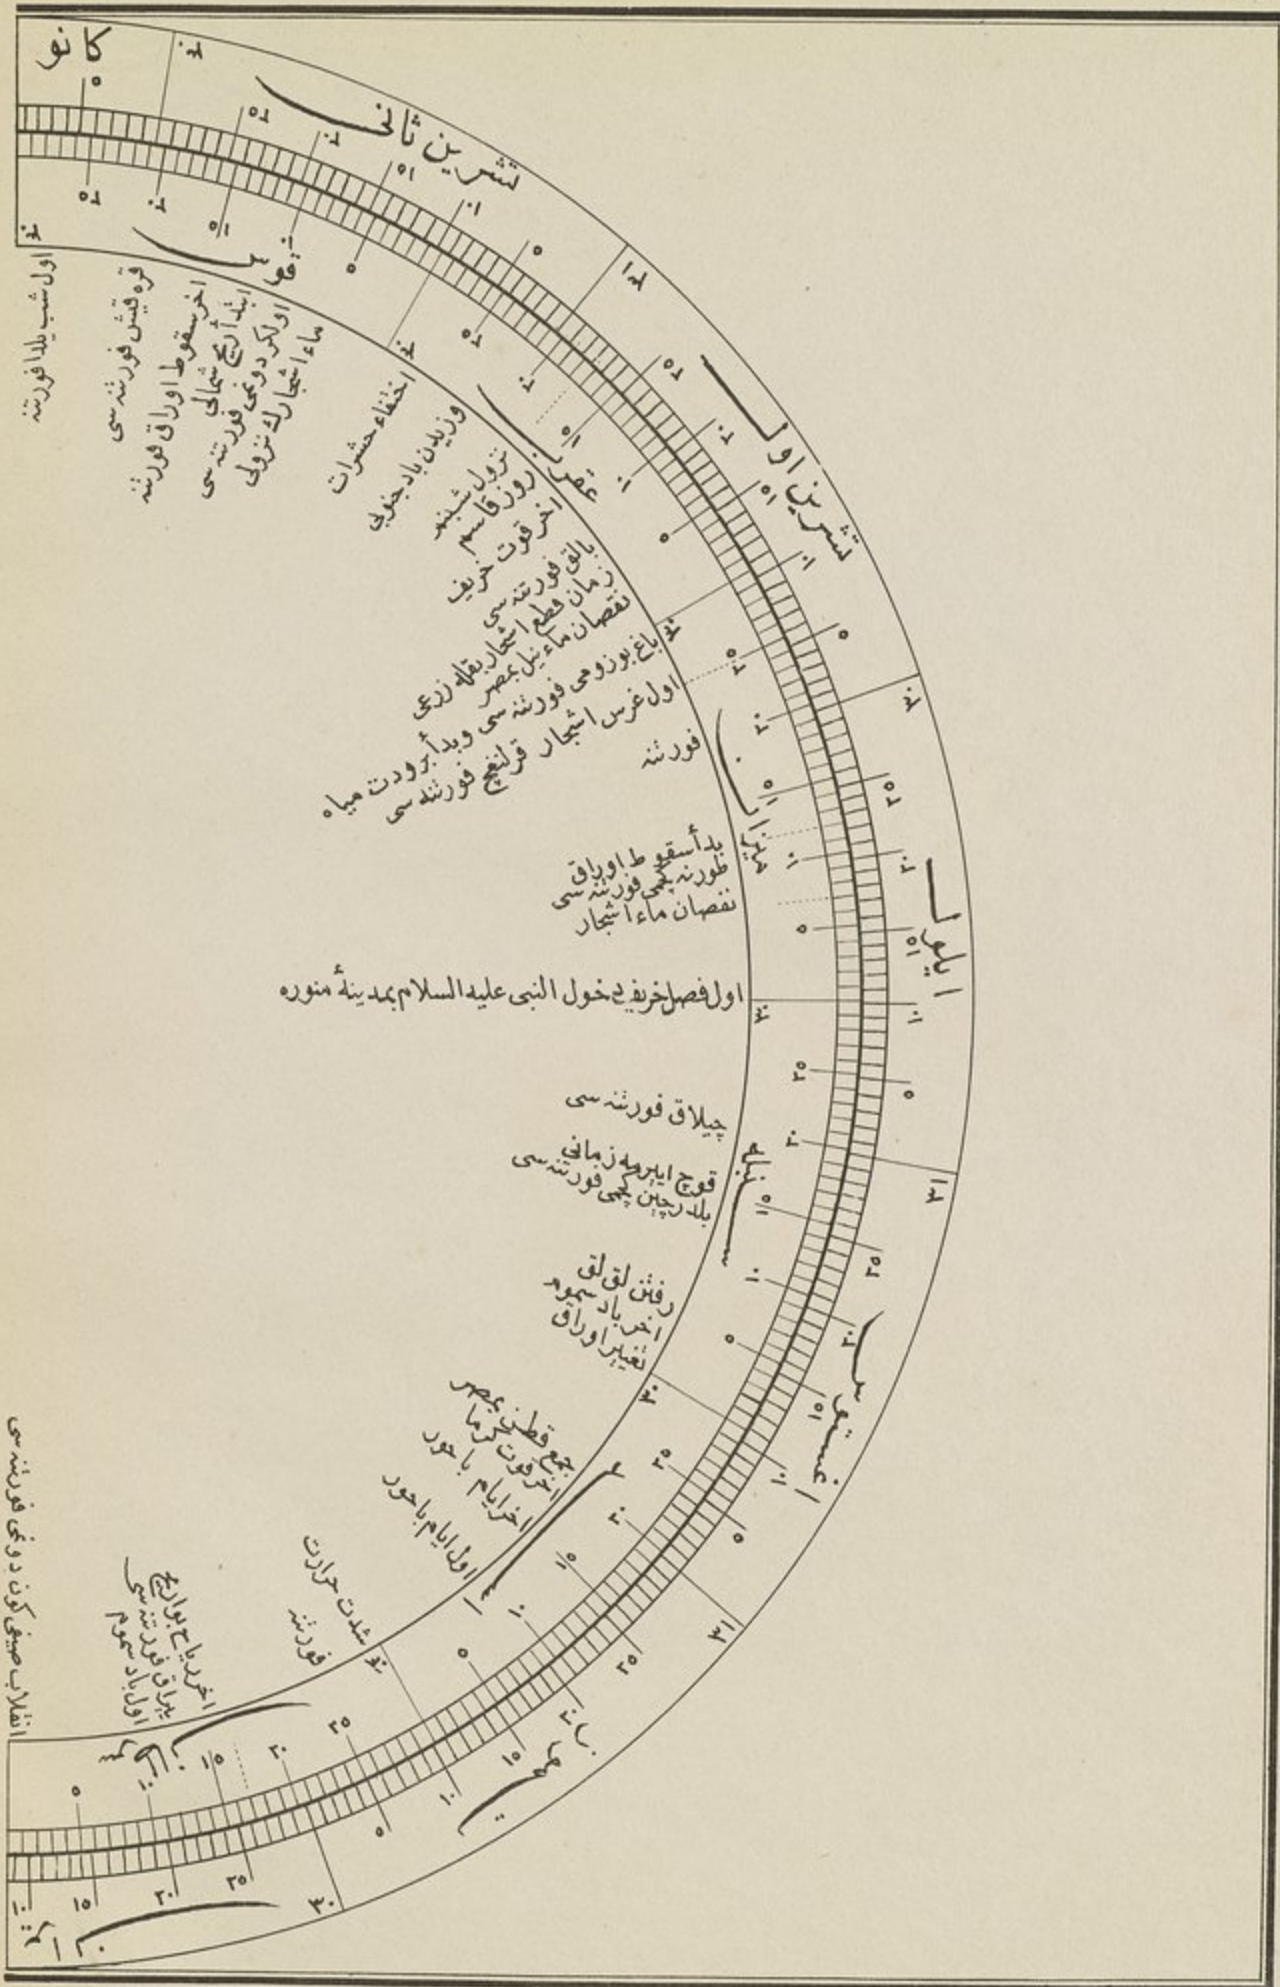 كانو
تشرين ثانى
تشرين اول
ايلول
اغستوس
تموز
قوس
عقرب
ميزان
سنبله
اسد
اول شب يلدا فورتنه
قره قيش فورتنه سى
اخر سقوط اوراق فورتنه
ابتدأ ريح شمالي
اولكر دونمى فورتنه سى
ماء اشجارك نزولى
اختفاء حشرات
وزيدن باد جنوبى
نزول شبنم
روز قاسم
اخر قوت خريف
بالق فورتنه سى
زمان قطع اشجار بقله زرعى
نقصان ماء نيل بمصر
باغ بوزومى فورتنه سى وبدأ برودت مياه
اول غرس اشجار قرلنغج فورتنه سى
فورتنه
بدأ سقوط اوراق
طورنه كچمى فورتنه سى
نقصان ماء اشجار
اول فصل خريف دخول النبى عليه السلام بمدينهٔ منوره
چيلاق فورتنه سى
قوچ ايرمه زمانى
بلدرچين كچمى فورتنه سى
رفتن لق لق
اخر باد سموم
تغيير اوراق
جمع قطن بمصر
اخر قوت كرما
اخر ايام باحور
اول ايام باحور
شدت حرارت
فورتنه
اخر رياح بوارح
يپراق فورتنه سى
اول باد سموم
انقلاب صيفى كون دونمى فورتنه سى